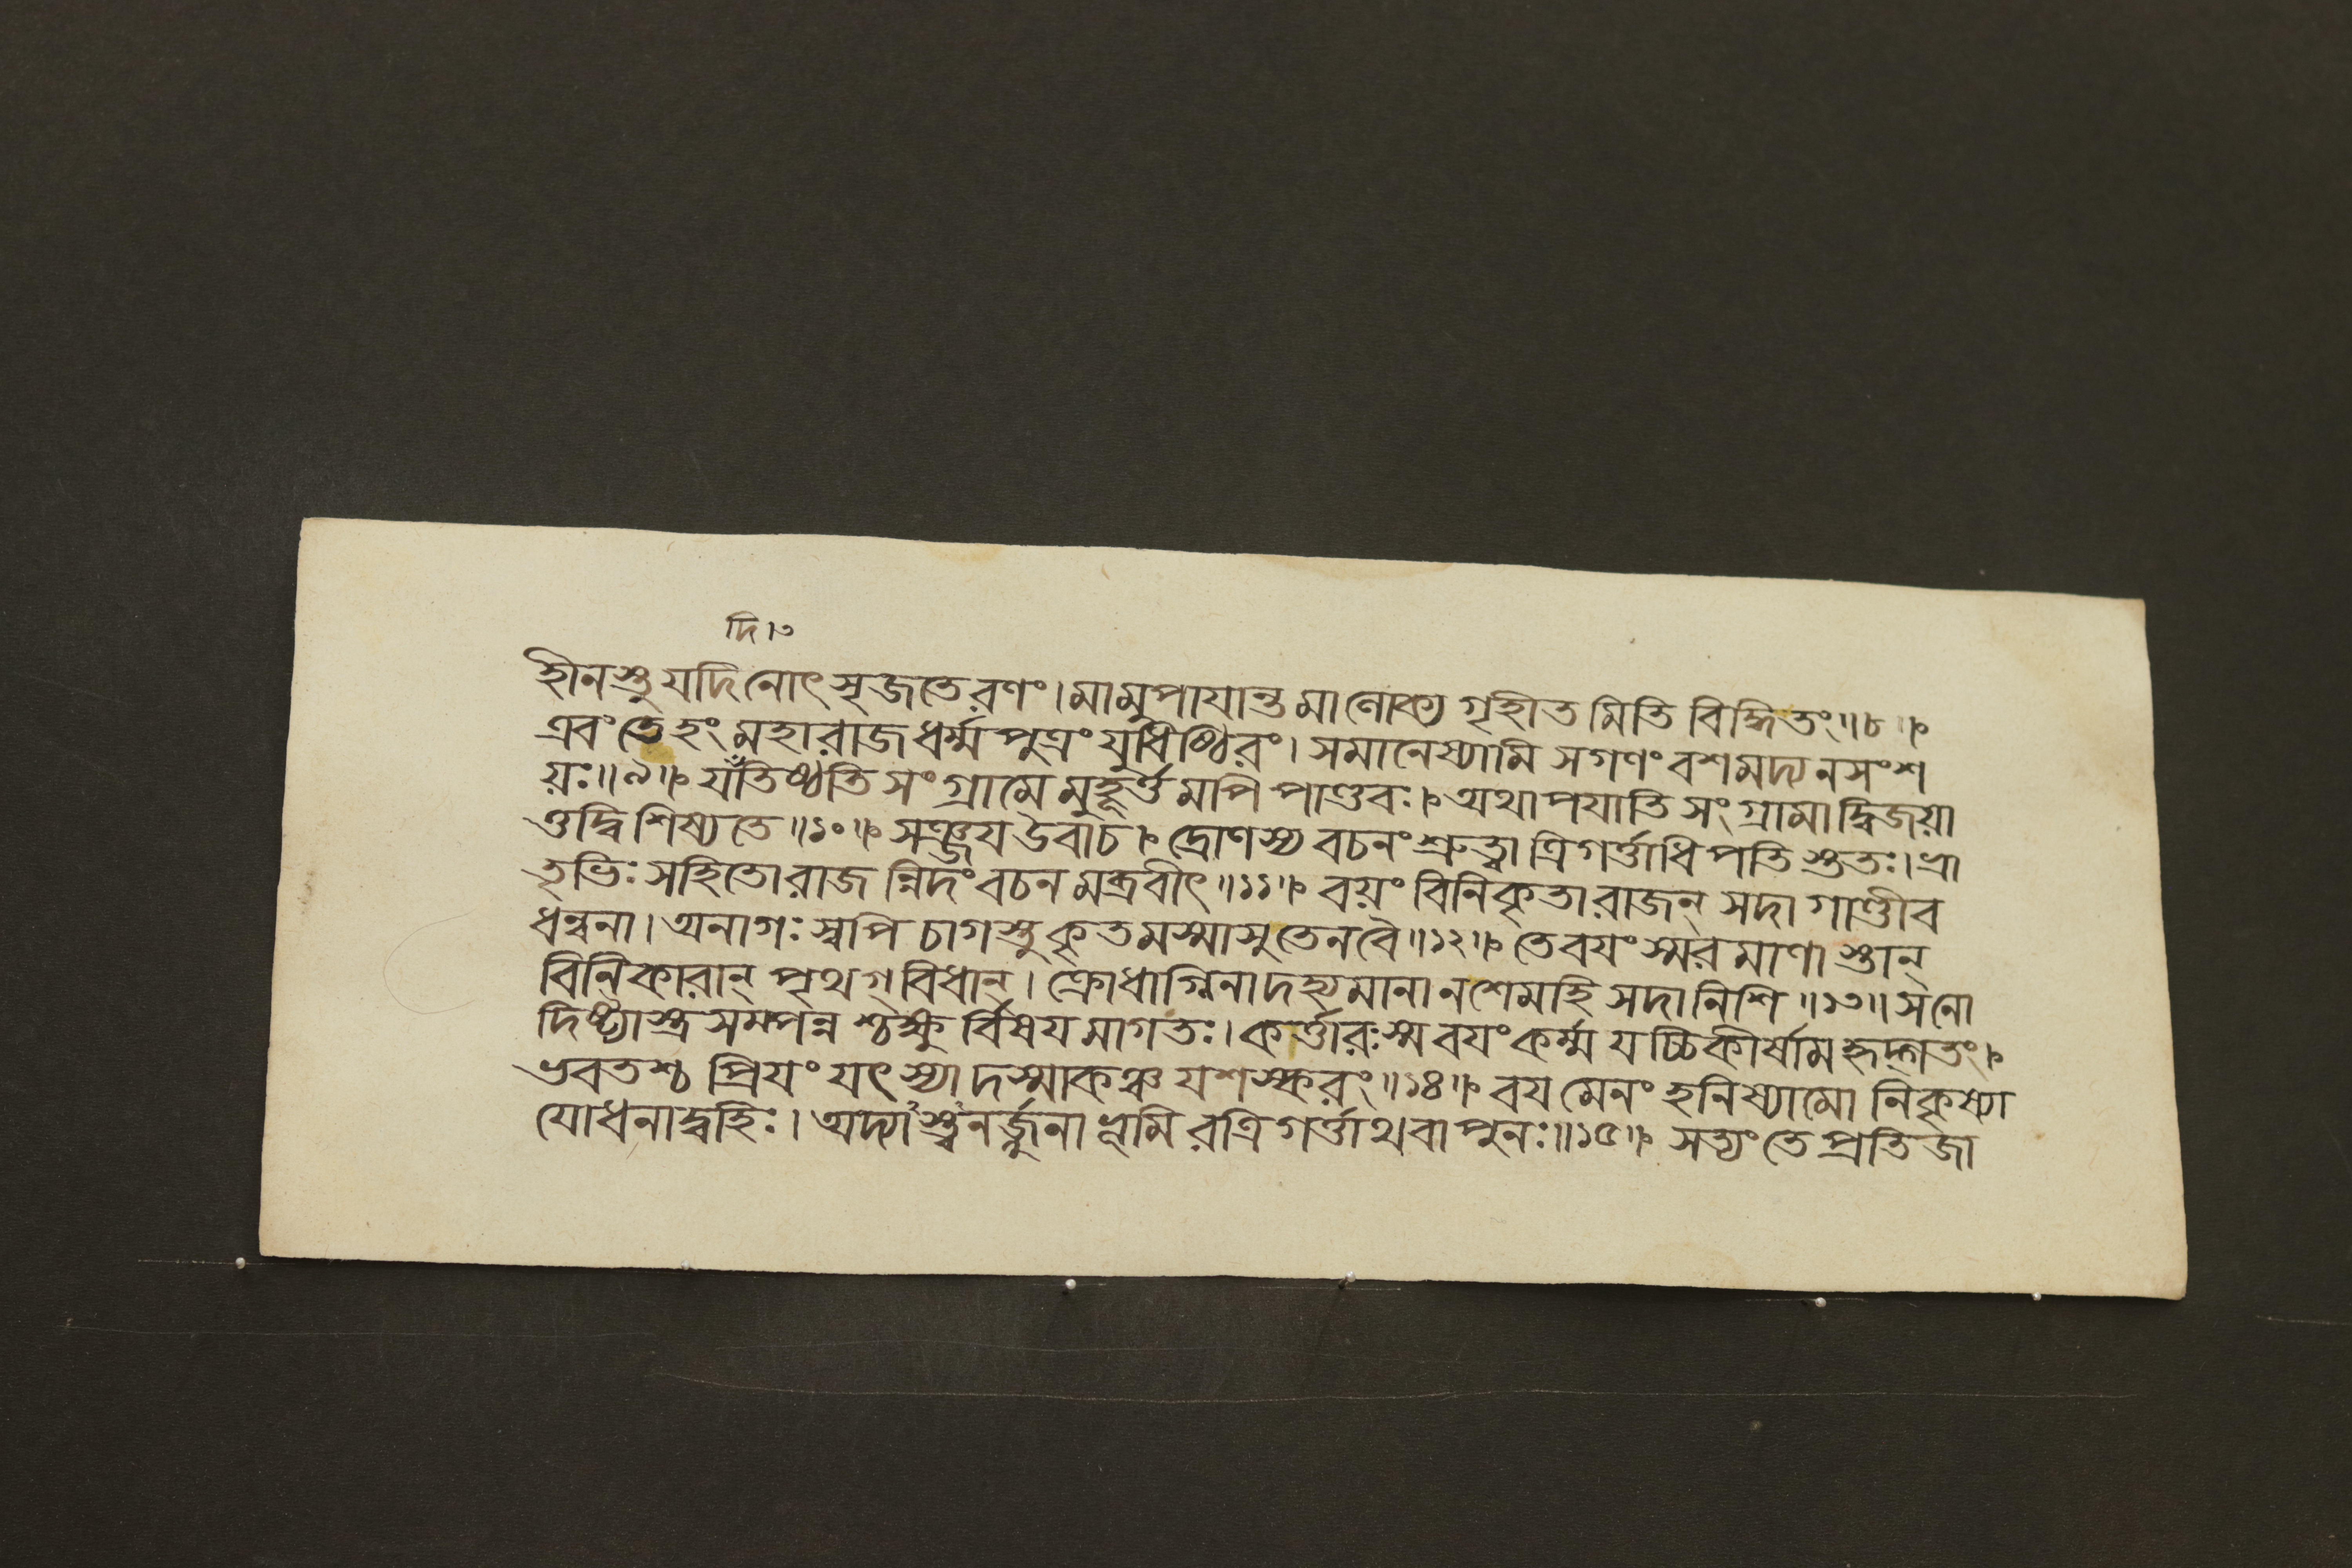 দি।৩
হীনস্তু যদি নোৎসৃজতে রণং। মামুপাযান্তমালোক্য গৃহীতমিতি বিদ্ধিতং॥৮॥
এবং তেহং মহারাজ ধর্ম্মপুত্রং যুধিষ্ঠিরং। সমানেষ্যামি সগণং বশমদ্য ন সংশ
য়ঃ॥৯॥ যঁতিষ্ঠতি সংগ্রামে মুহূর্ত্তমপি পাণ্ডবঃ। অথাপযাতি সংগ্রামাদ্বিজয়া
ত্তদ্বিশিষ্যতে॥১০॥ সঞ্জয উবাচ। দ্রোণস্য বচনং শ্রুত্বা ত্রিগর্ত্তাধিপতিস্ততঃ। ভ্রা
তৃভিঃ সহিতো রাজন্নিদং বচনমব্রবীৎ॥১১॥ বয়ং বিনিকৃতা রাজন্ সদা গাণ্ডীব
ধন্বনা। অনাগঃস্বপি চাগস্তু কৃতমস্মাসু তেন বৈ॥১২॥ তে বযং স্মরমাণাস্তান্
বিনিকারান্ পৃথগ্বিধান্। ক্রোধাগ্নিনা দহ্যমানা ন শেমহি সদা নিশি॥১৩॥ স নো
দিষ্ট্যাস্ত্রসম্পন্নশ্চক্ষুর্বিষযমাগতঃ। কর্ত্তারঃ স্ম বযং কর্ম্ম যচ্চিকীর্ষামহৃদ্গতং।
ভবতশ্চ প্রিযং যৎ স্যাদস্মাকঞ্চ যশস্করং॥১৪॥ বযমেনং হনিষ্যামো নিকৃষ্যা
যোধনাদ্বহিঃ। অদ্যাস্ত্বনর্জ্জুনা ভূমিরত্রিগর্ত্তাথবা পুনঃ॥১৫॥ সত্যং তে প্রতিজা